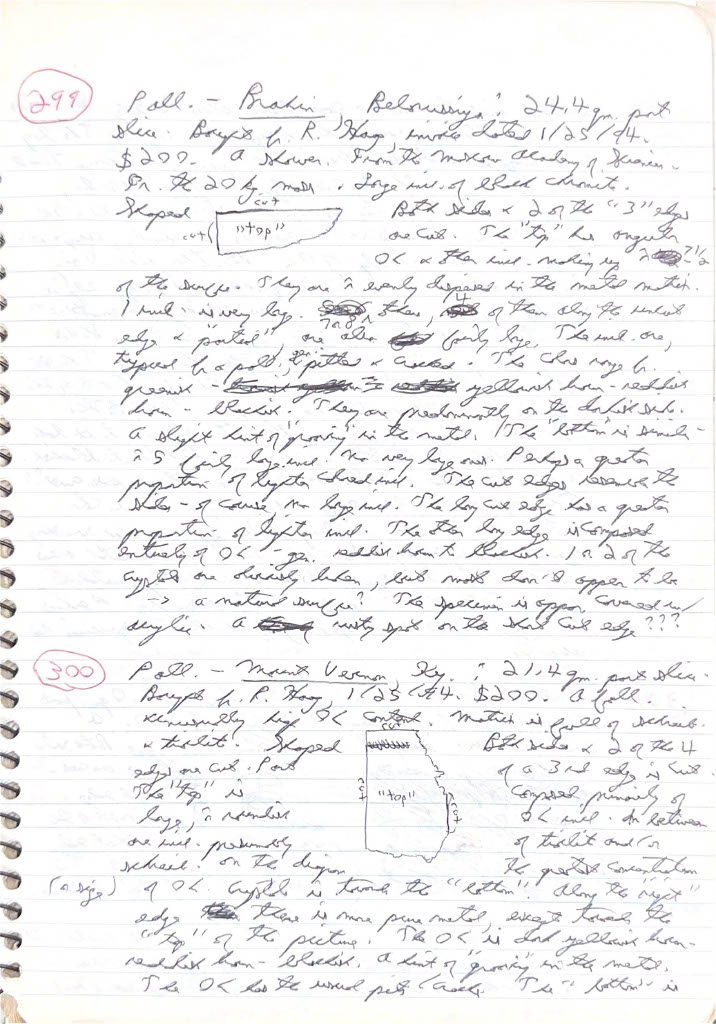 299 Pall. - Brahin Belorussiya; 24.4 gm. part
slice. Bought fr. R. Haag, invoice dated 1/25/94.
$200. A shower. From the Moscow Academy of Sciences.
Fr. the 20 kg mass. Large incl. of black chromite.
cut
Shaped Both sides & 2 of the "3" edges
cut "top" are cut. The "top" has angular
OL & other incl. making up
of the surface. They are evenly dispersed in the metal matrix.
1 incl. is very large. 7 or 8 others, 4 of them along the uncut
edge & "partial", are also fairly large. The incl. are,
typical fr a pall., gen. pitted & cracked. The colors range fr.
greenish - yellowish brown - reddish
brown - blackish. They are predominantly on the darkish side.
A slight hint of "graining" in the metal. The "bottom" is similar -
5 fairly large incl. No very large ones. Perhaps a greater
proportion of lighter colored incl. The cut edges resemble the
sides - of course, no large incl. The long cut edge has a greater
proportion of lighter incl. The other long edge is composed
entirely of OL - gen. reddish brown to blackish. 1 or 2 of the
crystals are obviously broken, but most don't appear to be
-> a natural surface? The specimen is appar. covered w/
acrylic. A rusty spot on the short cut edge???
300 Pall. - Mount Vernon, Ky.; 21.4 gm. part slice.
Bought fr. R. Haag, 1/25/94. $200. A fall.
Unusually high OL content. Matrix is full of schreib.
cut
& troilite. Shaped Both sides & 2 of the 4
edges are cut. Part of a 3rd edge is cut.
The "top" is cut "top" cut composed primarily of
large, roundish OL incl. In between
are incl. presumably of troilite and/or
schreib. on the diagram the greatest concentration
(& size) of OL crystals is towards the "bottom". Along the "right"
edge there is more pure metal, except towards the
"top" of the picture. The OL is dark yellowish brown -
reddish brown - blackish. A hint of "graining" in the metal.
The OL has the usual pits & cracks. The "bottom" is